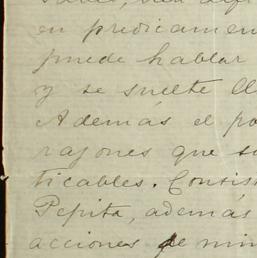 en predicamen
puede hablar
y se suelte
Además el po
razones que s
ticables. Consis
Pepita, además
acciones de min